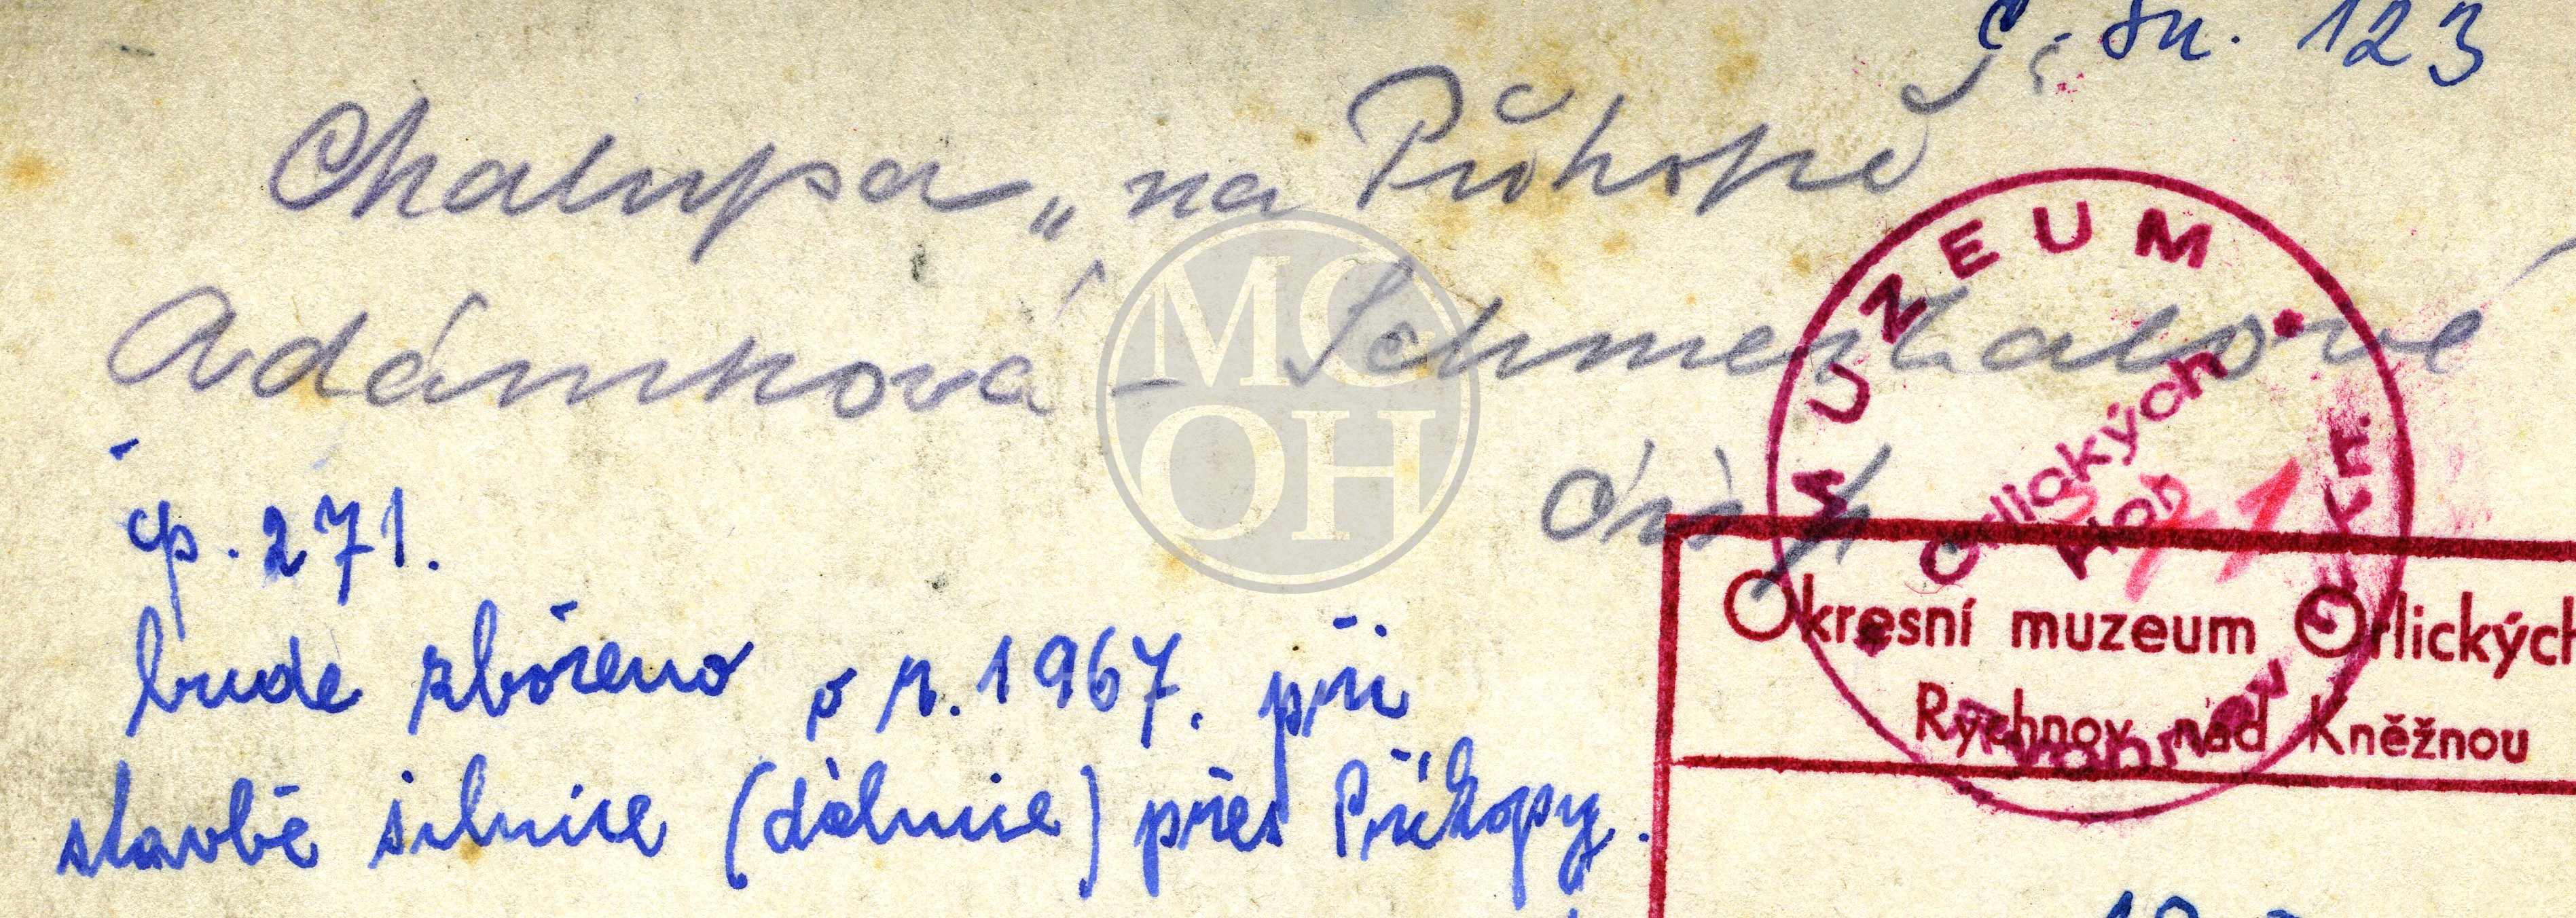 č. sn. 123
Chalupa „na Příkopě
Adámková –
čp. 271.
bude zbořeno v r. 1967. při
stavbě silnice (dálnice) přes Příkopy.
MUZEUM
Orlických
Hor
Okresní muzeum Orlických
Rychnov nad Kněžnou
MG
OH